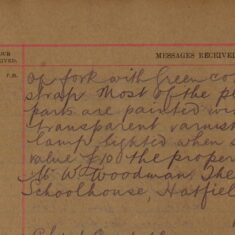 OUR
EIVED.
MESSAGES RECEIVE
P.M.
on fork with Green co
strap Most of the pl
parts are painted wi
transparent varnis
lamp lighted when s
value £10 the proper
Mr W Woodman The
Schoolhouse, Hatfiel